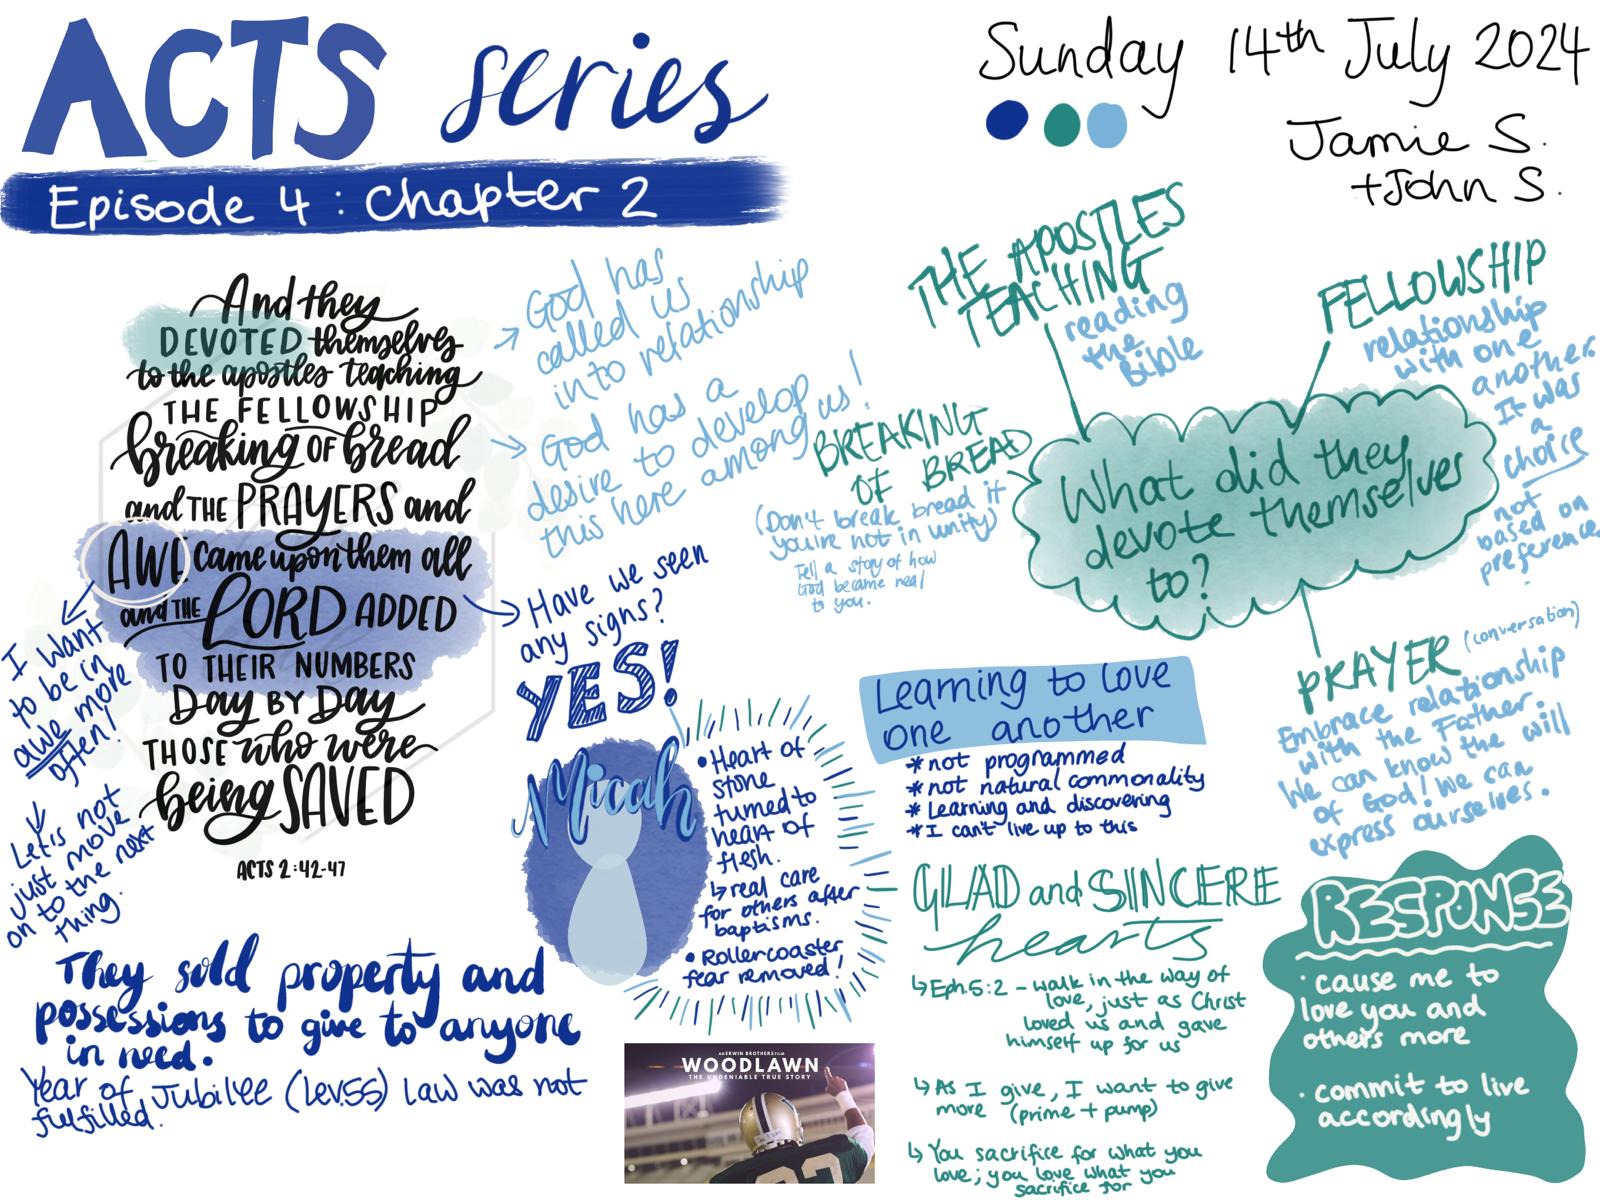 ACTS series
Episode 4 : Chapter 2
Sunday 14th July 2024
Jamie S.
+John S.
And they
DEVOTED themselves
to the apostles teaching
THE FELLOWSHIP
breaking OF bread
and THE PRAYERS and
AWE came upon them all
and THE LORD ADDED
TO THEIR NUMBERS
Day BY Day
THOSE who were
being SAVED
ACTS 2:42-47
I want
to be in
awe more
often!
Let's not
just move
on to the next
thing.
→ God has
called us
into relationship
→ God has a
desire to develop
this here among us!
Have we seen
any signs?
YES!
Micah
• Heart of
stone
turned to
heart of
flesh.
↳ real care
for others after
baptisms.
• Rollercoaster
fear removed!
They sold property and
possessions to give to anyone
in need.
Year of Jubilee (Lev.55) Law was not
fulfilled.
AN ERWIN BROTHERS FILM
WOODLAWN
THE UNDENIABLE TRUE STORY
What did they
devote themselves
to?
THE APOSTLES
TEACHING
reading
the
Bible
FELLOWSHIP
relationship
with one
another.
It was
a
choice
not
based on
preference
.
BREAKING
OF BREAD
(Don't break bread if
you're not in unity)
Tell a story of how
God became real
to you.
PRAYER (conversation)
Embrace relationship
with the Father.
We can know the will
of God! We can
express ourselves.
Learning to love
one another
* not programmed
* not natural commonality
* Learning and discovering
* I can't live up to this
GLAD and SINCERE
hearts
↳ Eph.5:2 - walk in the way of
love, just as Christ
loved us and gave
himself up for us
↳ As I give, I want to give
more (prime + pump)
↳ You sacrifice for what you
love; you love what you
sacrifice for
RESPONSE
· cause me to
love you and
others more
· commit to live
accordingly